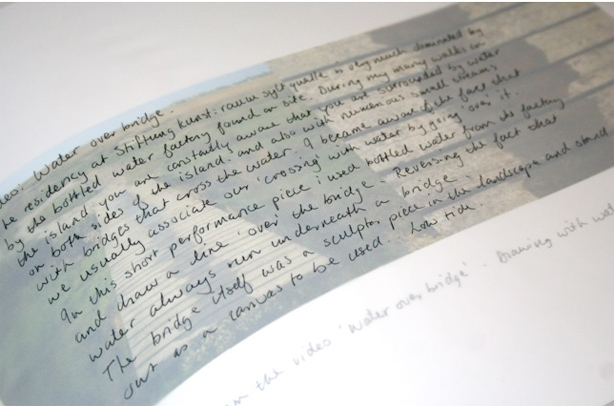 Video: Water over bridge.
The residency at Stiftung kunst:raum sylt quelle is very much dominated by
by the bottled water factory found on site. During my many walks on
the island you are constantly aware that you are surrounded by water
on both sides of the island and also with numerous small streams
with bridges that cross the water. I became aware of the fact that
we usually associate our 'crossing' with water by going 'over' it.
In this short performance piece I used bottled water from the factory
and draw a line 'over' the bridge - Reversing the fact that
water always run underneath a bridge.
The bridge itself was a sculptor piece in the landscape and stand
out as a canvas to be used. Low tide
the video 'Water over bridge'. Drawing with wat